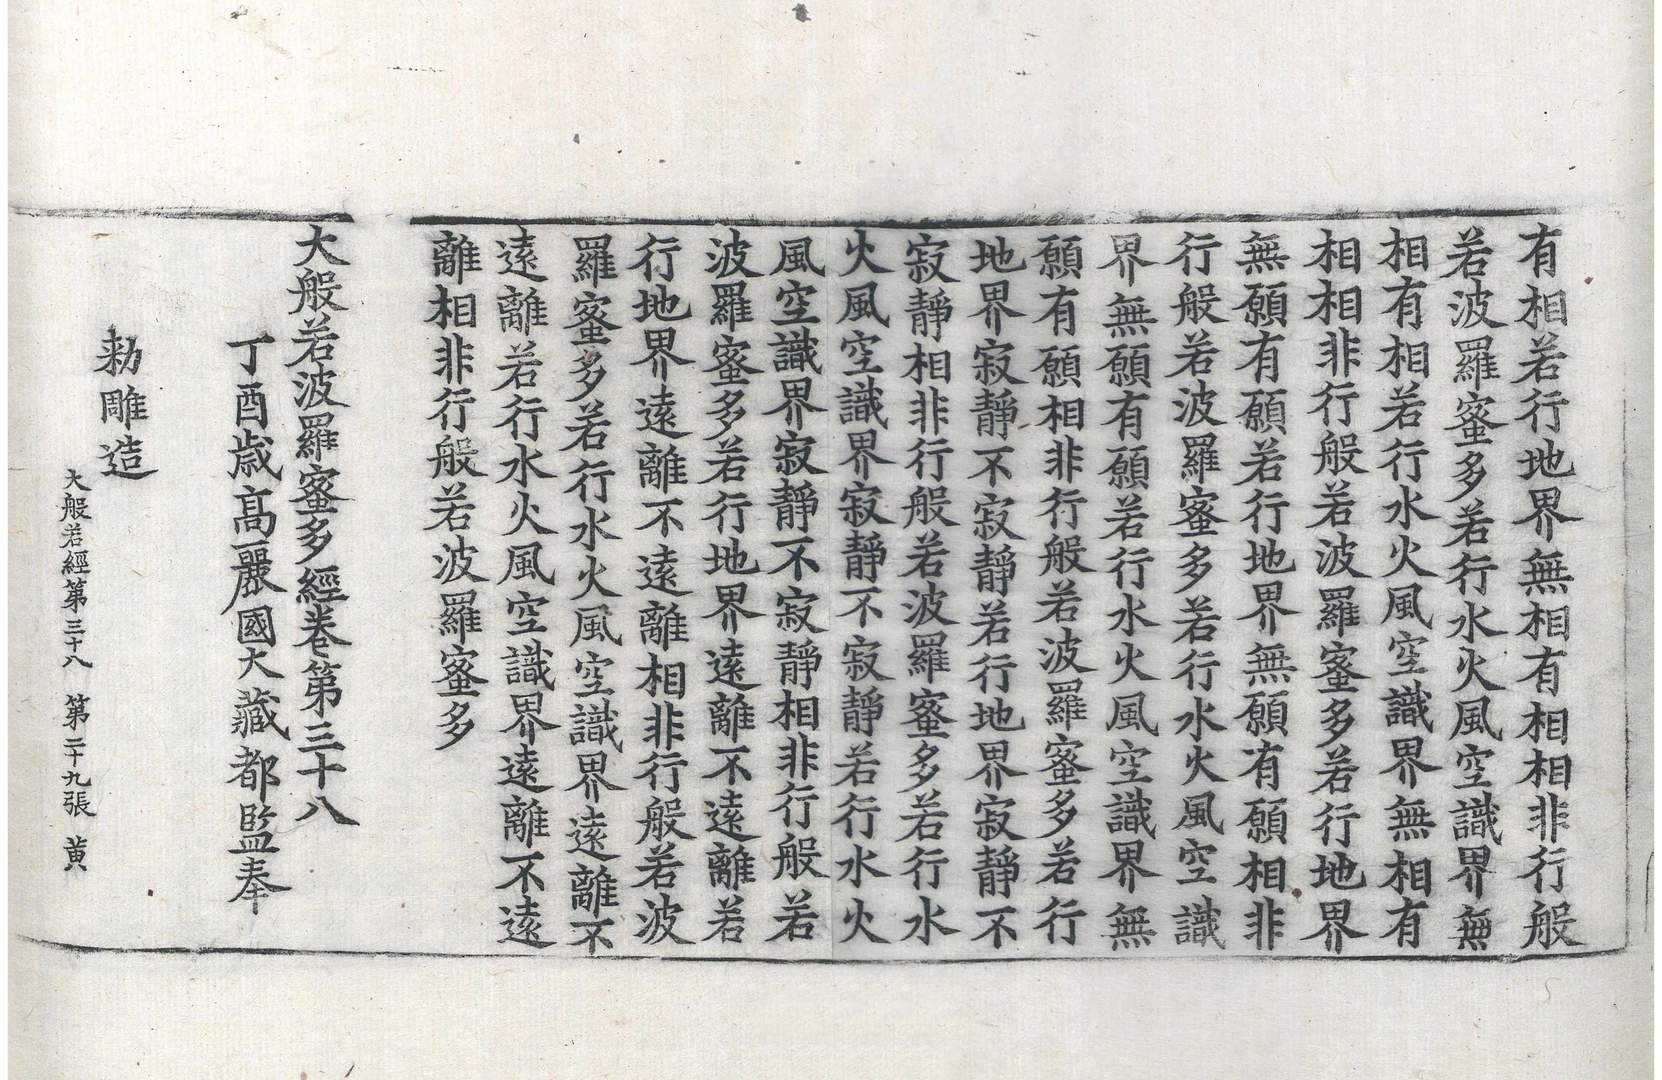 有相若行地界無相有相相非行般
若波羅蜜多若行水火風空識界無
相有相若行水火風空識界無相有
相相非行般若波羅蜜多若行地界
無願有願若行地界無願有願相非
行般若波羅蜜多若行水火風空識
界無願有願若行水火風空識界無
願有願相非行般若波羅蜜多若行
地界寂靜不寂靜若行地界寂靜不
寂靜相非行般若波羅蜜多若行水
火風空識界寂靜不寂靜若行水火
風空識界寂靜不寂靜相非行般若
波羅蜜多若行地界遠離不遠離若
行地界遠離不遠離相非行般若波
羅蜜多若行水火風空識界遠離不
遠離若行水火風空識界遠離不遠
離相非行般若波羅蜜多
大般若波羅蜜多經卷第三十八
丁酉歲高麗國大藏都監奉
勑雕造
大般若經第三十八 第二十九張 黄